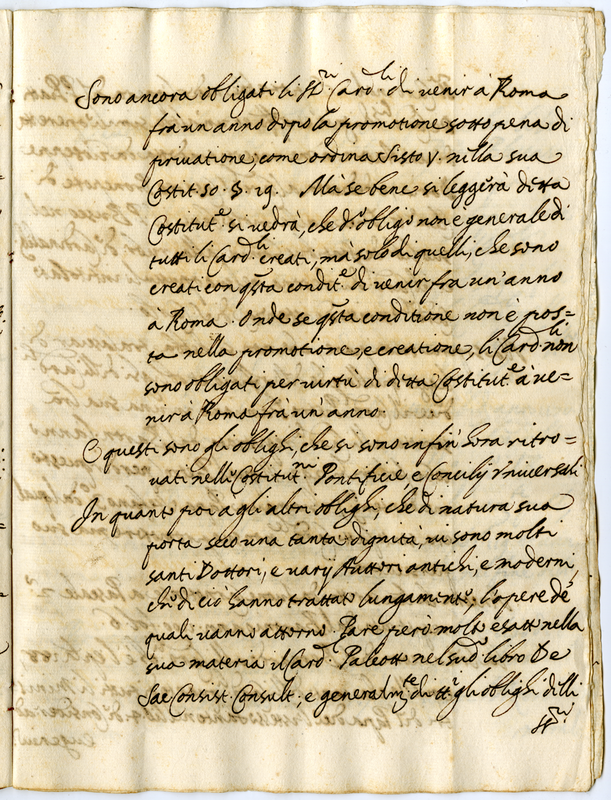 Sono ancora obligati li SS.ri Card.li di venir à Roma
frà un anno dopo la promotione sotto pena di
privatione, come ordina Sisto V. nella sua
Costit. 50. §. 19. Mà se bene si leggerà detta
Costitut.e si vedrà, che d.o obligo non è generale di
tutti li Card.li creati, mà solo di quelli, che sono
creati con q̃sta condit.e di venir fra un'anno
à Roma. Onde se q̃sta conditione non è pos=
ta nella promotione, e creatione, li Card.li non
sono obligati per virtù di detta Costitut.e à ve=
nir à Roma frà un'anno.
E questi sono gli oblighi, che si sono infin' hora ritro=
vati nelle Costitut.ni Pontificie e Concilij Universali
In quanto poi a gli altri oblighi, che di natura sua
porta seco una tanta dignità, vi sono molti
santi Dottori, e varij Auttori antichi, e moderni,
che di ciò hanno trattato lungamente, l'opere de
quali vanno attorno. Pare però molto esatto nella
sua materia il Card. Paleotto nel suo libro De
Sac. Consist. Consult.; e generalm.te di tt.i gli oblighi delli
SS.ri